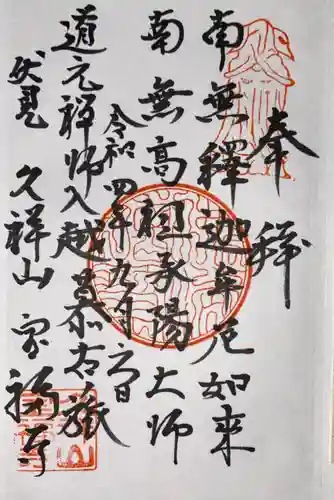 奉拜
南無釋迦牟尼如来
南無高祖承陽大師
令和四年九月六日
道元禅師入越慕古蹟
伏見 久祥山 寳福寺